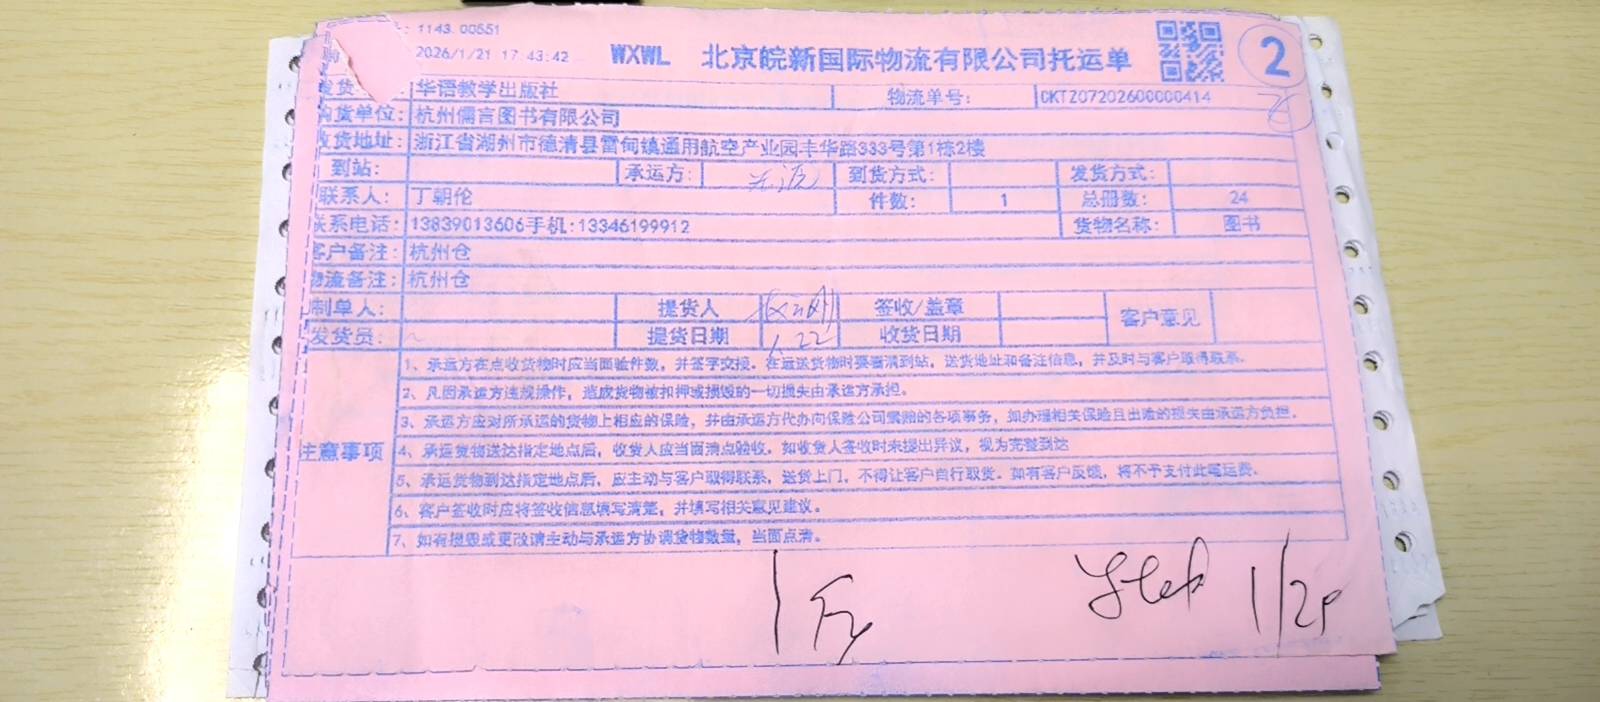 1143.00551
2026/1/21 17:43:42 WXWL 北京皖新国际物流有限公司托运单 2
华语教学出版社 物流单号: CKTZ07202600000414
购货单位: 杭州儒言图书有限公司
收货地址: 浙江省湖州市德清县雷甸镇通用航空产业园丰华路333号第1栋2楼
到站: 承运方: 到货方式: 发货方式:
联系人: 丁朝伦 件数: 1 总册数: 24
联系电话: 13839013606手机:13346199912 货物名称: 图书
客户备注: 杭州仓
物流备注: 杭州仓
制单人: 提货人 签收/盖章 客户意见
发货员: 提货日期 1.22 收货日期
注意事项
1、承运方在点收货物时应当面验件数,并签字交接。在运送货物时要看清到站,送货地址和备注信息,并及时与客户取得联系。
2、凡因承运方违规操作,造成货物被扣押或损毁的一切损失由承运方承担。
3、承运方应对所承运的货物上相应的保险,并由承运方代办向保险公司索赔的各项事务,如办理相关保险且出险的损失由承运方负担。
4、承运货物送达指定地点后,收货人应当面清点验收。如收货人签收时未提出异议,视为完整到达
5、承运货物到达指定地点后,应主动与客户取得联系,送货上门,不得让客户自行取货。如有客户反馈,将不予支付此笔运费。
6、客户签收时应将签收信息填写清楚,并填写相关意见建议。
7、如有损毁或更改请主动与承运方协调货物数量,当面点清。